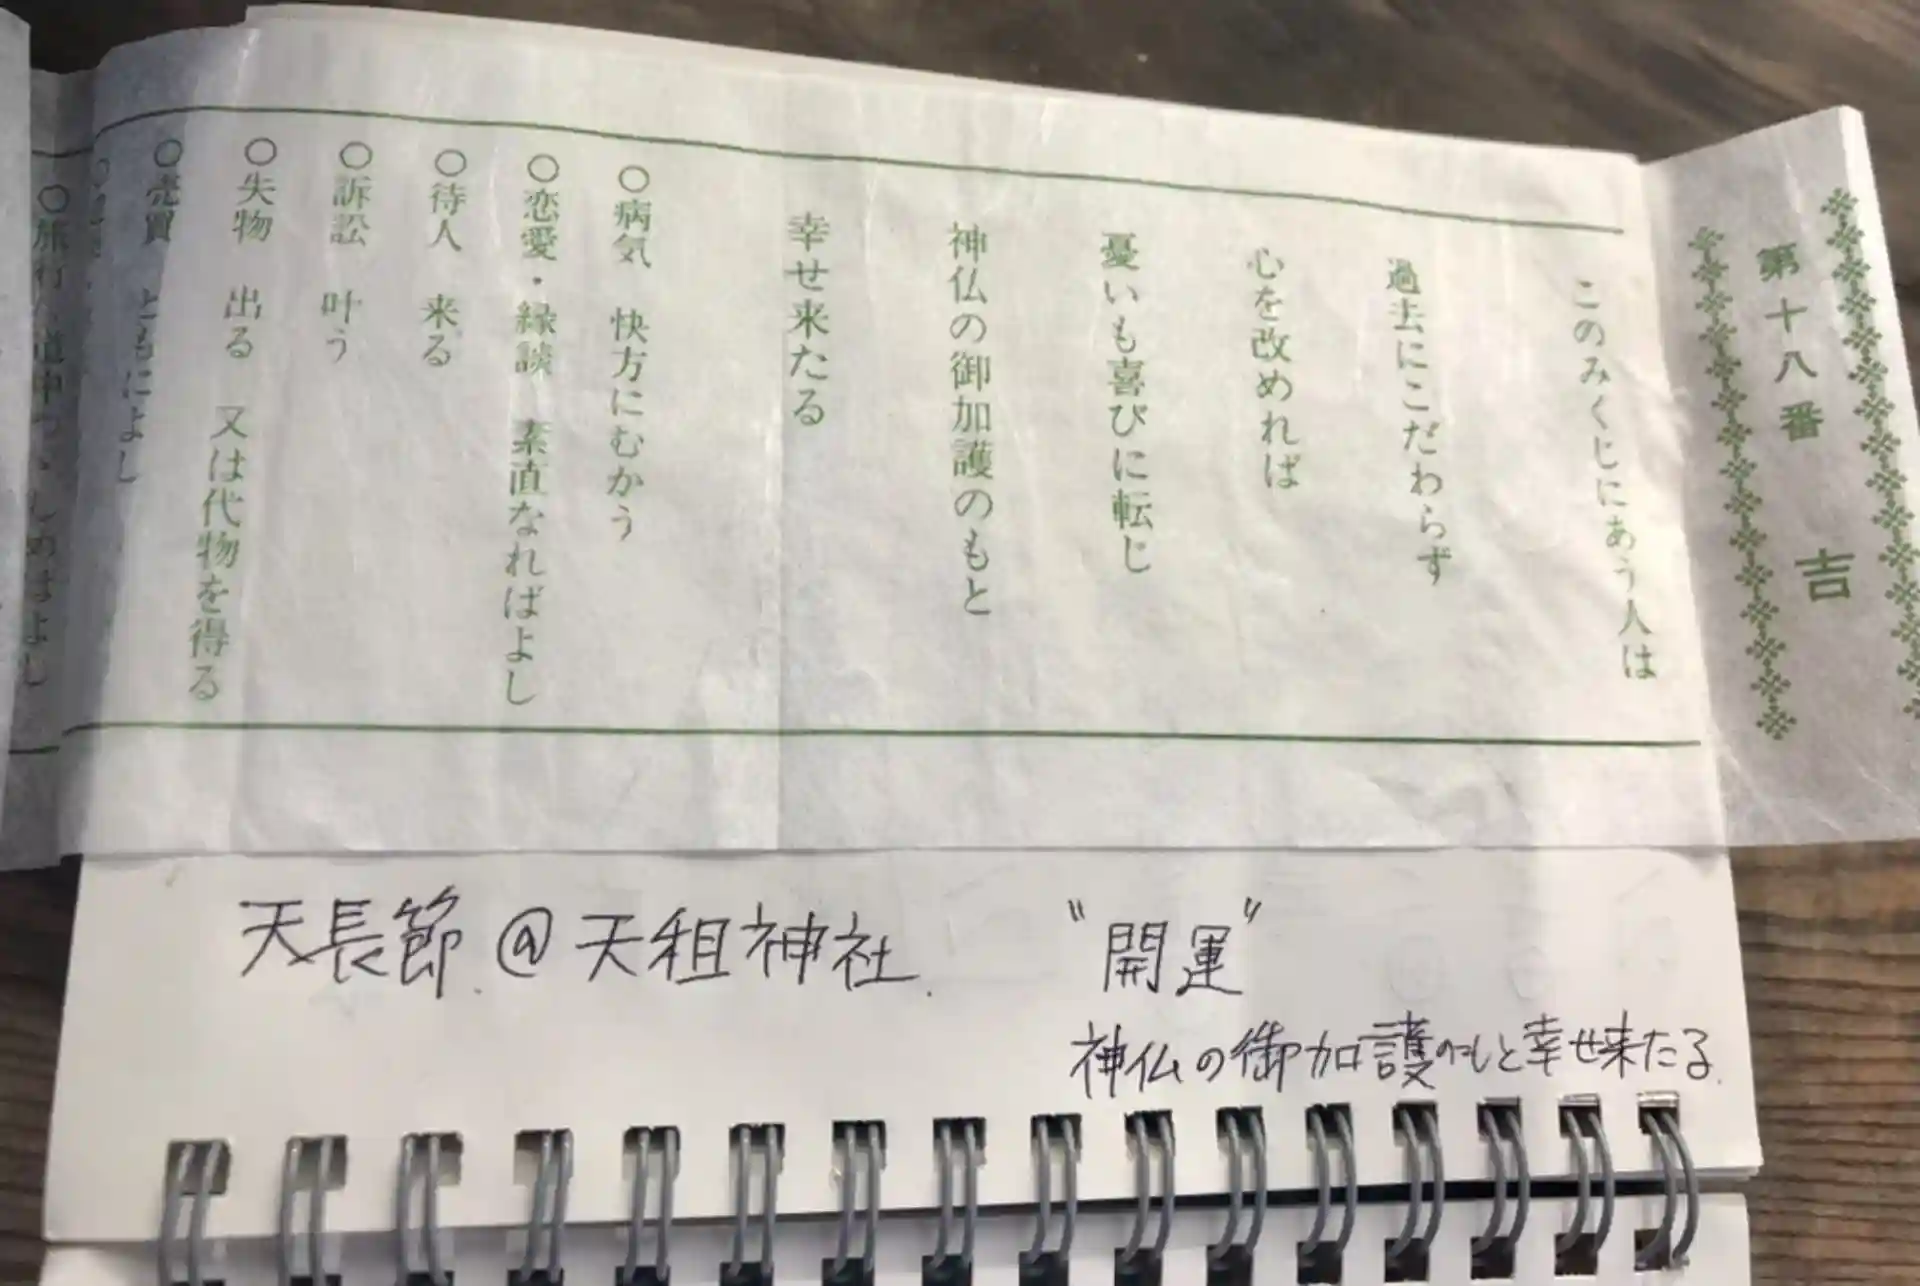 第十八番 吉
このみくじにあう人は
過去にこだわらず
心を改めれば
憂いも喜びに転じ
神仏の御加護のもと
幸せ来たる
○病気 快方にむかう
○恋愛・縁談 素直なればよし
○待人 来る
○訴訟 叶う
○失物 出る 又は代物を得る
○売買 ともによし
○旅行 道中つゝしめばよし
天長節@天祖神社.
"開運"
神仏の御加護のもと幸せ来たる.